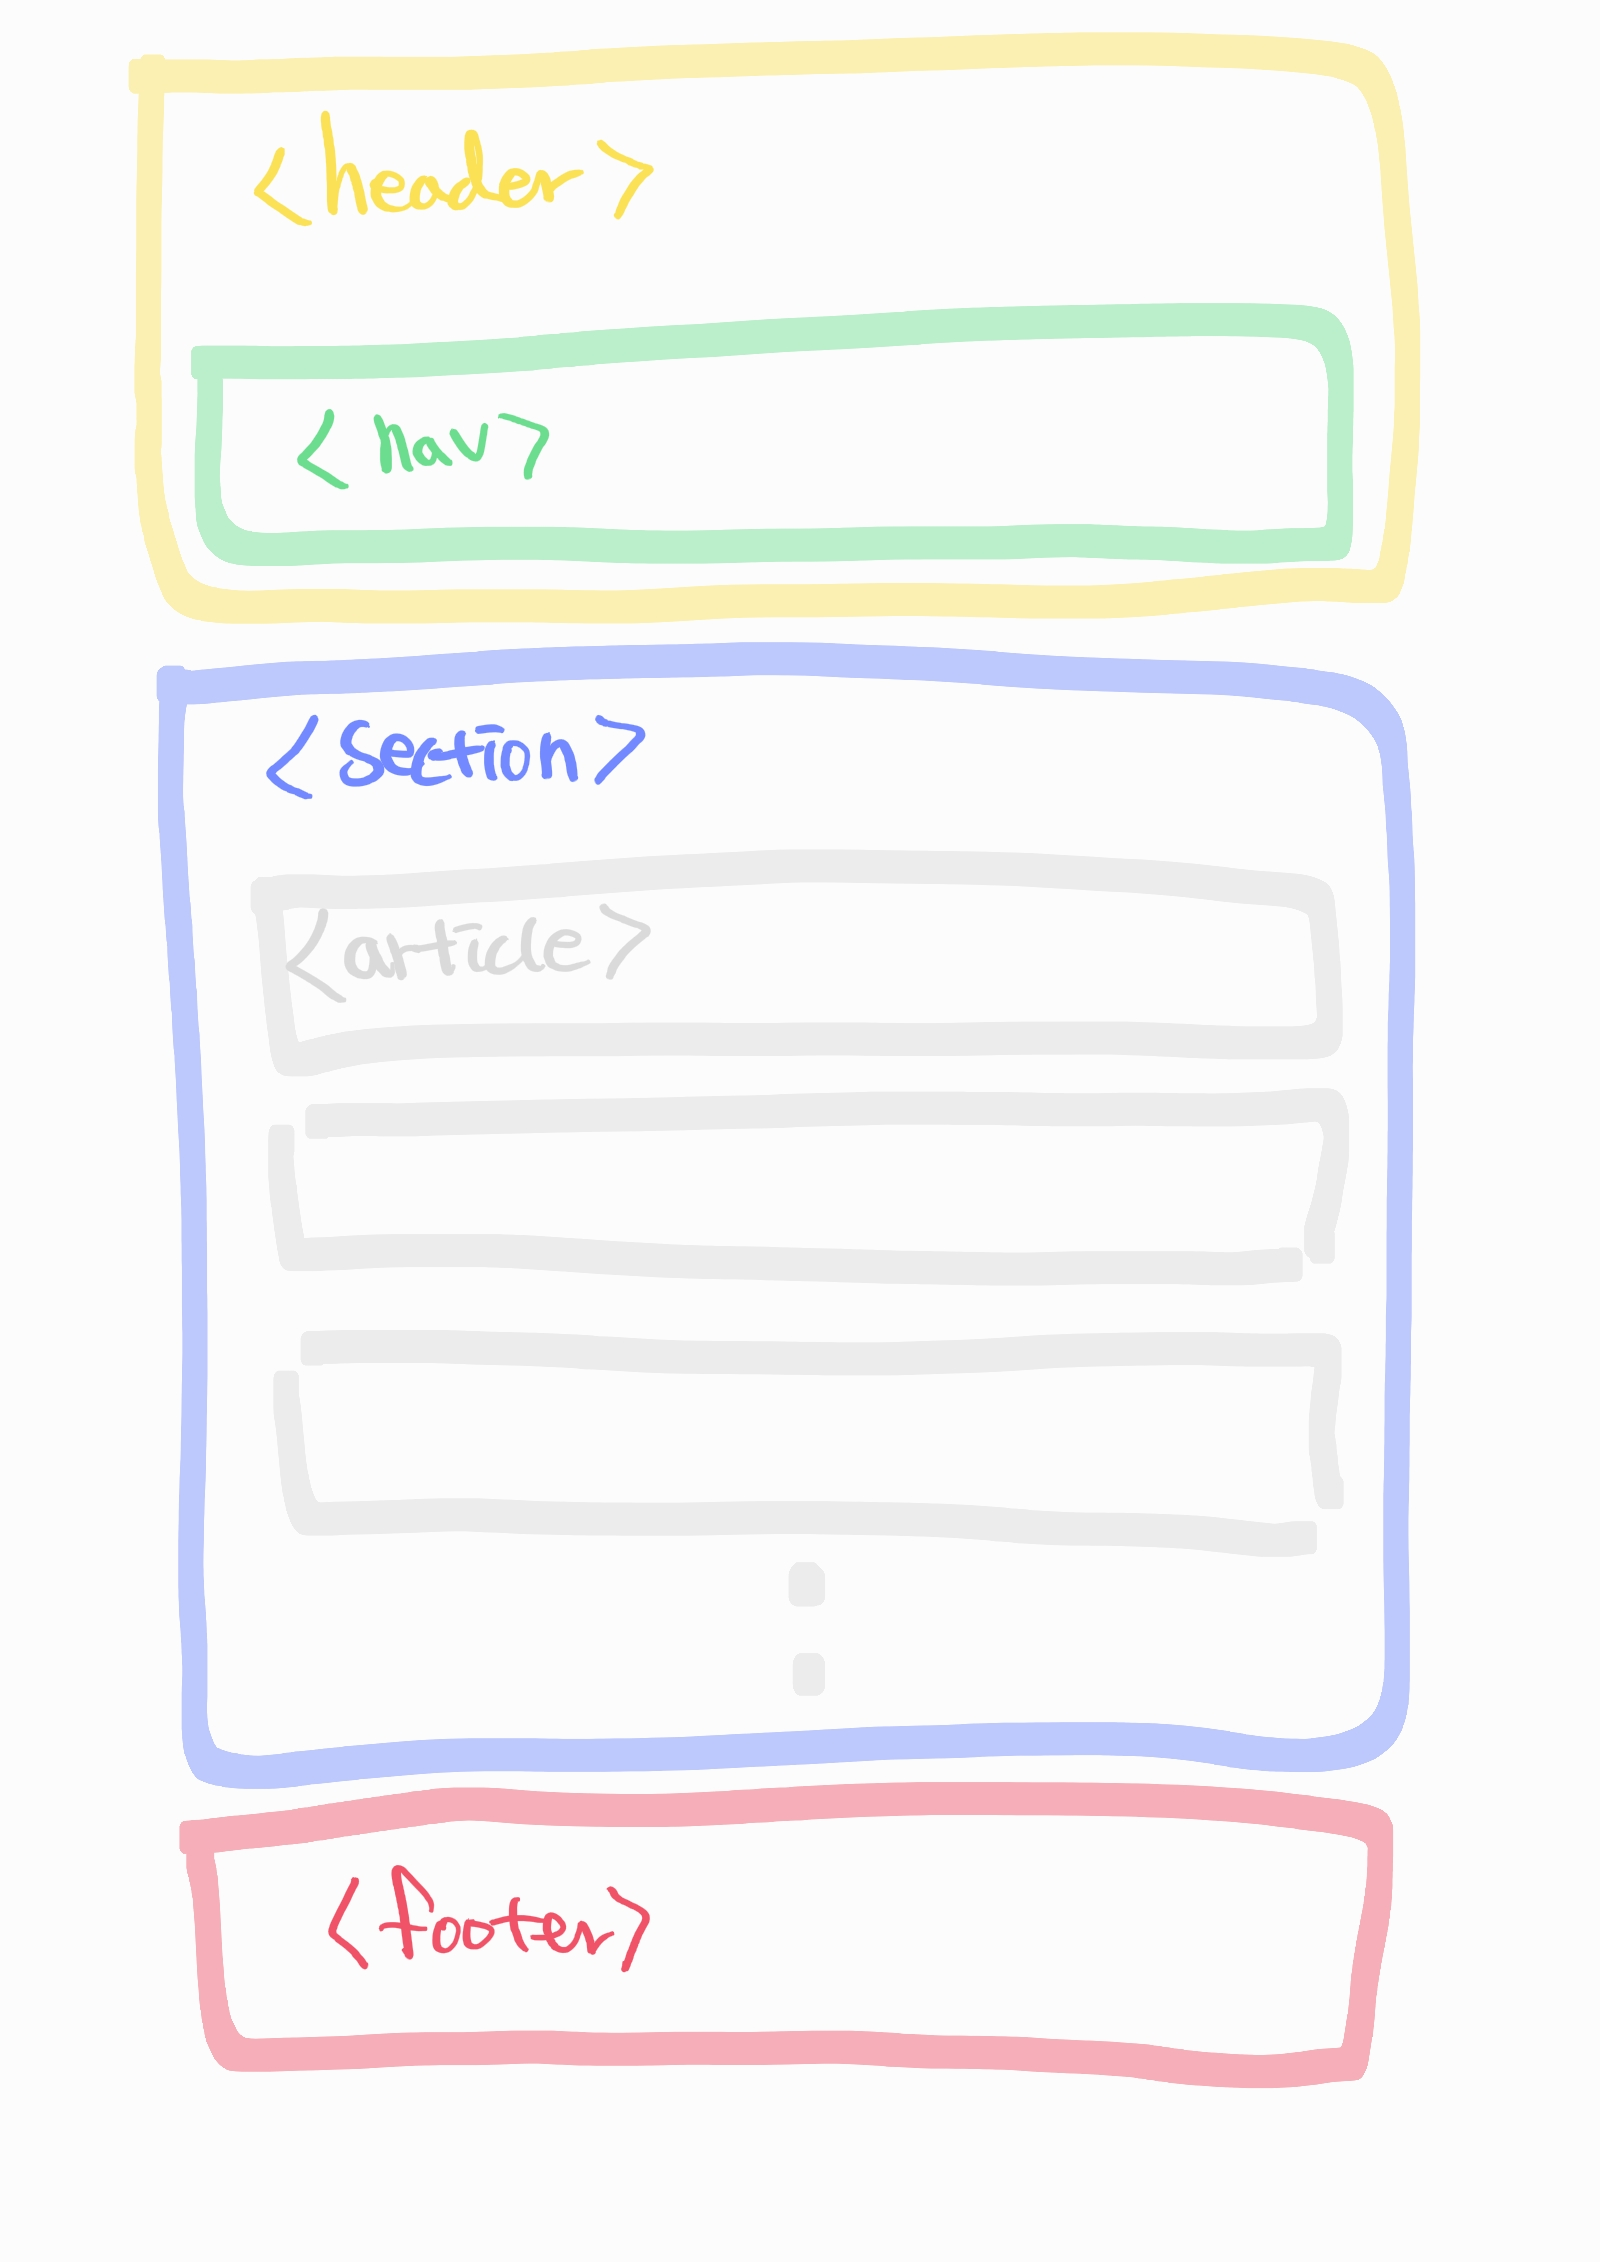 <header>
<nav>
<section>
<article>
<footer>